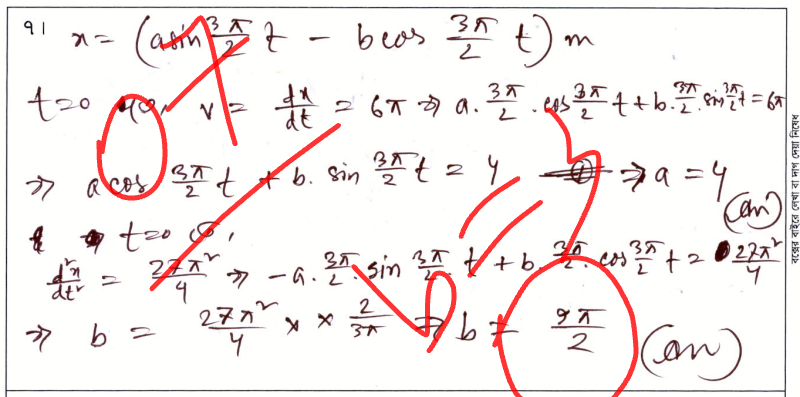 91 x = (a sin 3π/2 t - b cos 3π/2 t) m
t=0 v = dx/dt = 6π ⇒ a. 3π/2 . cos 3π/2 t + b. 3π/2 . sin 3π/2 t = 6π
⇒ a cos 3π/2 t + b. sin 3π/2 t = 4 ⇒ a = 4
(an)
t=0
d²x/dt² = 27π²/4 ⇒ -a. 3π/2 . sin 3π/2 . t + b. 3π/2 . cos 3π/2 t = 27π²/4
⇒ b = 27π²/4 × × 2/3π ⇒ b = 9π/2 (an)
বক্সের বাইরে লেখা বা দাগ দেয়া নিষেধ